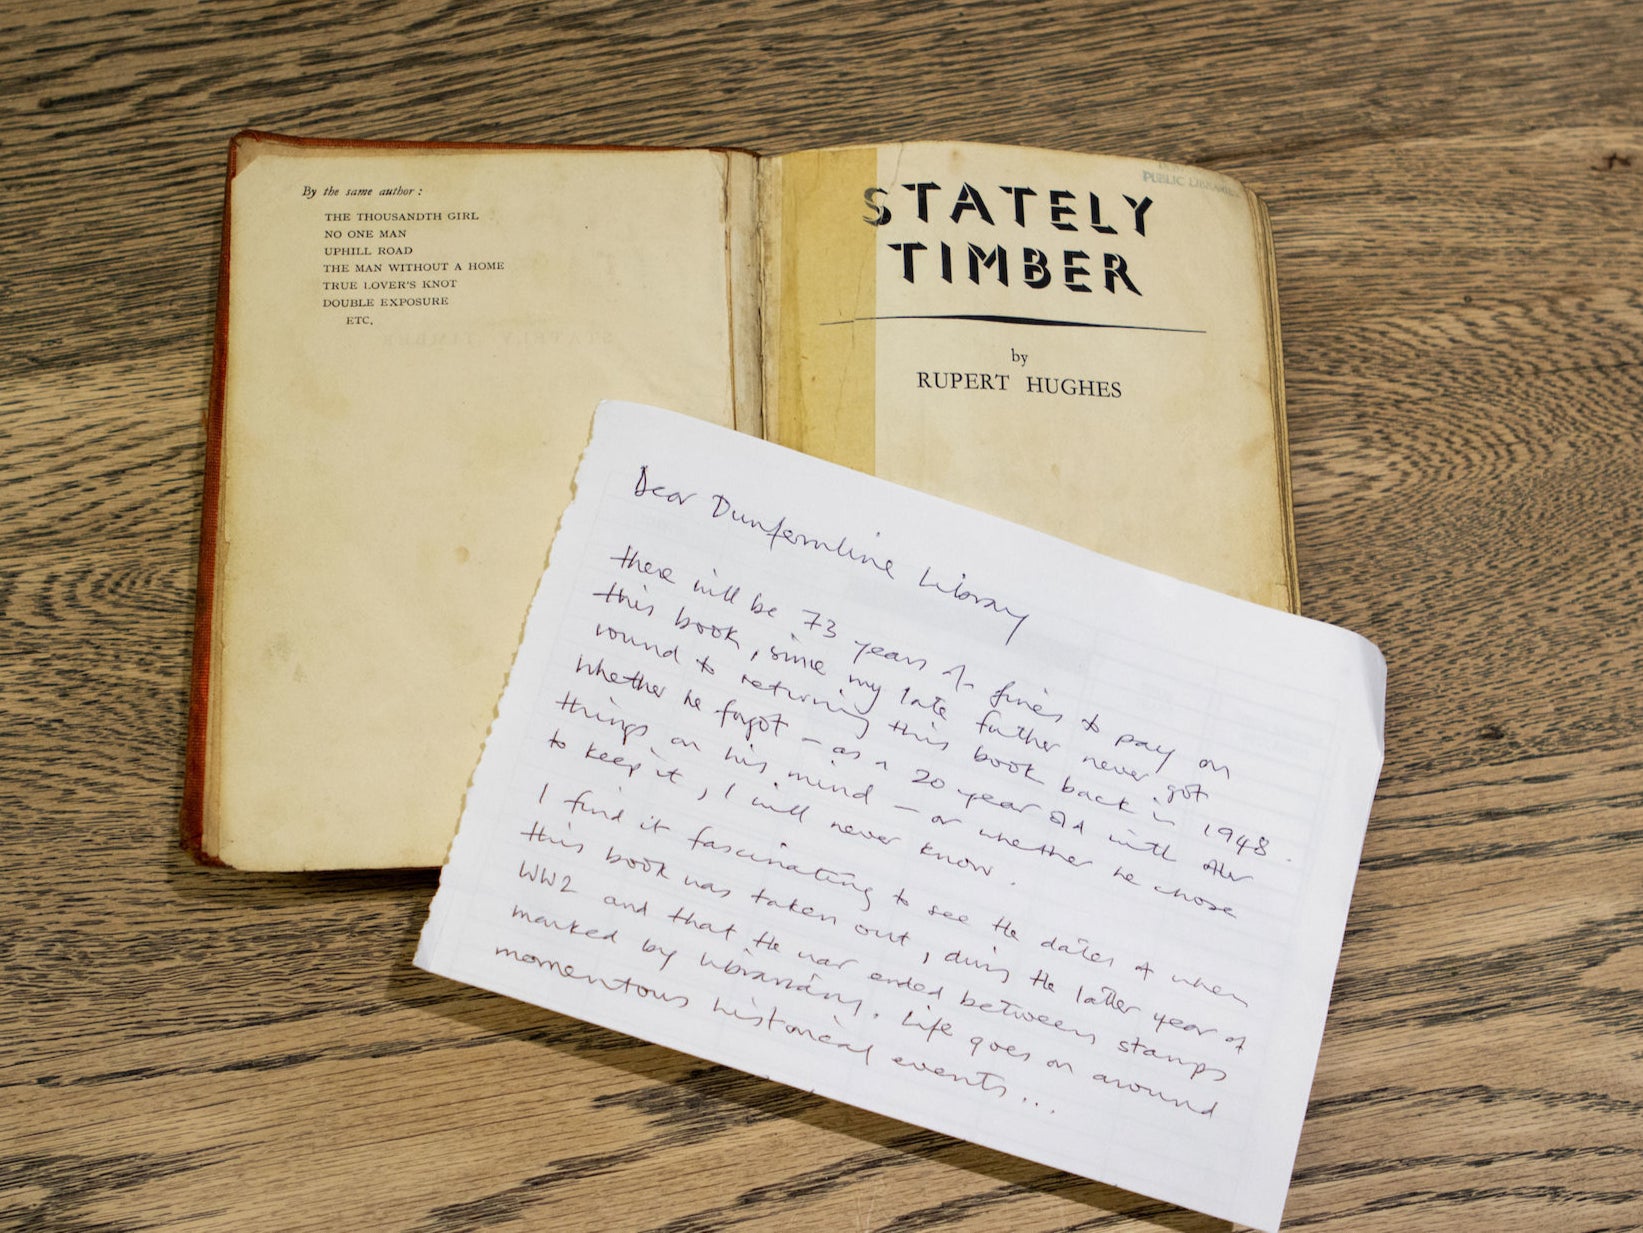 By the same author :
THE THOUSANDTH GIRL
NO ONE MAN
UPHILL ROAD
THE MAN WITHOUT A HOME
TRUE LOVER'S KNOT
DOUBLE EXPOSURE
ETC.
PUBLIC LIBRARIES
STATELY
TIMBER
by
RUPERT HUGHES
Dear Dunfermline Library
there will be 73 years of fines to pay on
this book, since my late father never got
round to returning this book back in 1948.
Whether he forgot – as a 20 year old with other
things on his mind – or whether he chose
to keep it, I will never know.
I find it fascinating to see the dates of when
this book was taken out, during the latter year of
WW2 and that the war ended between stamps
marked by librarians. Life goes on around
momentous historical events...